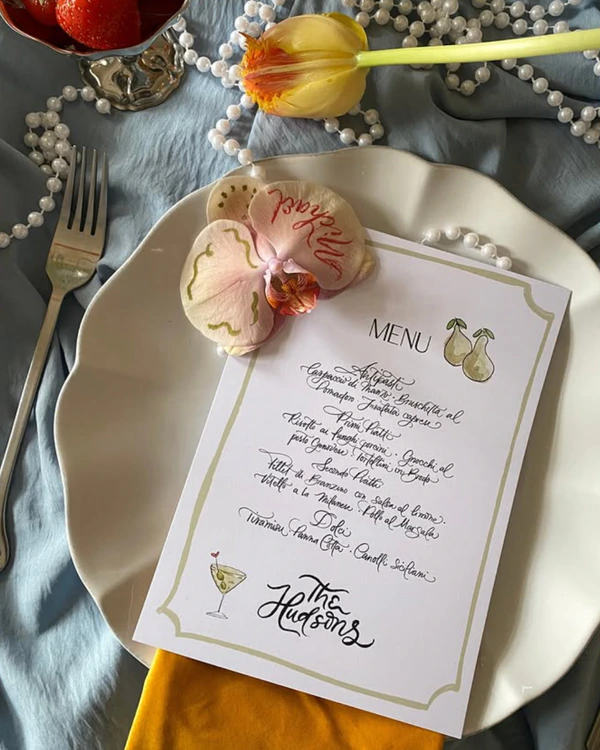 Michael
W.
MENU
Antipasti
Carpaccio di Manzo · Bruschetta al
Pomodoro Insalata caprese
Primi Piatti
Risotto ai funghi porcini · Gnocchi al
pesto Genovese · Tortellini in Brodo
Secondo Piatti
Fillet di Branzino con salsa al limone ·
Vitello a la Milanese · Pollo al Marsala
Dolci
Tiramisu · Panna Cotta · Canolli Siciliani
The
Hudsons